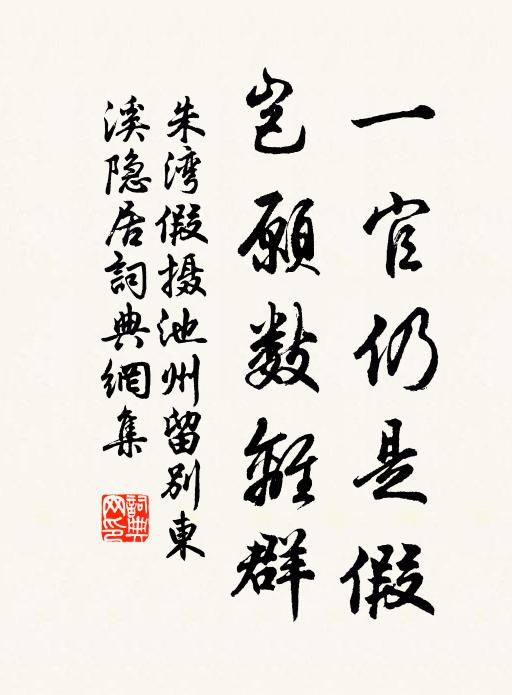 一官仍是假
岂願数離群
朱湾假摄池州留别東
溪隐居詞典網集
詞典
网印